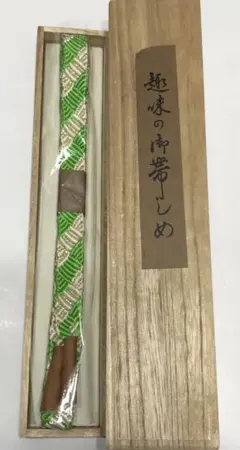 趣味の御帯〆め